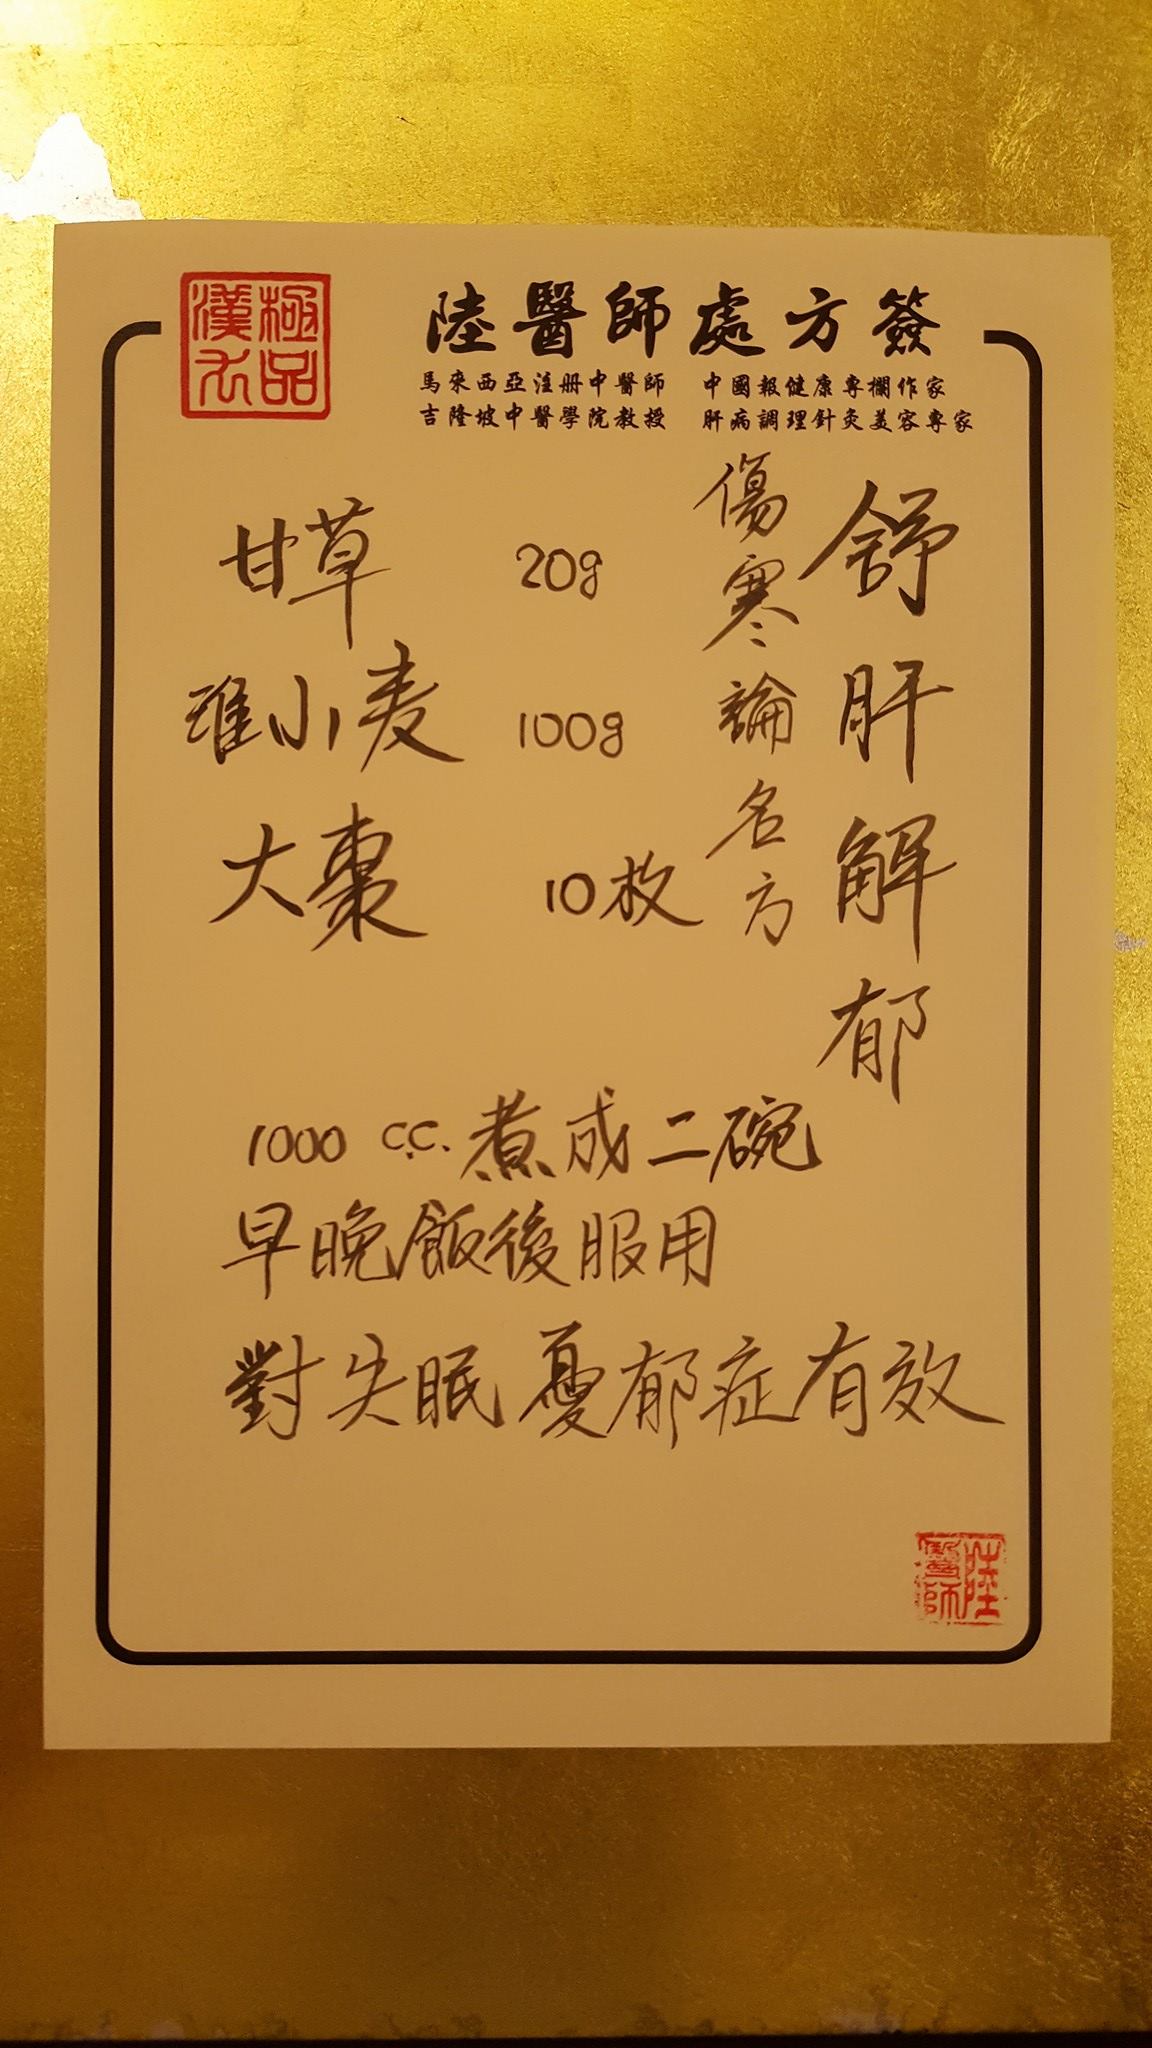 極品漢方
陸醫師處方簽
馬來西亞注册中醫師 中國報健康專欄作家
吉隆坡中醫學院教授 肝病調理針灸美容專家
舒肝解郁
傷寒論名方
甘草 20g
淮小麦 100g
大棗 10枚
1000 c.c. 煮成二碗
早晚飯後服用
對失眠憂郁症有效
陸醫師